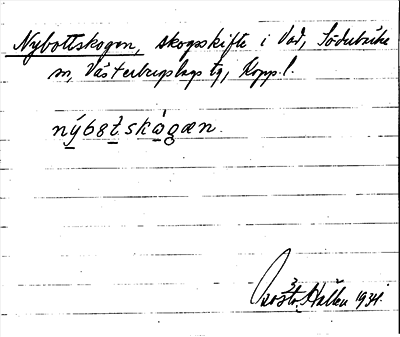 Nybottskogen, skogsskifte i Vad, Söderbärke
sn, Västerbergslags tg, Kopp. l.
nýbɞt̀skògæn.
1934.